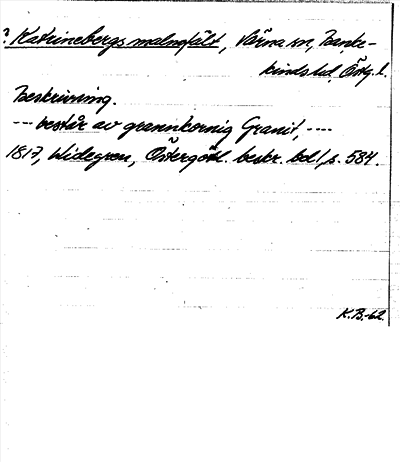 ? Katrinebergs malmfält, Värna sn, Banke-
kinds hd, Östg. l.
Beskrivning.
--- består av grannkornig Granit, ----
1817, Widegren, Östergötl. beskr. bd 1, s. 584.
K.B.-62.